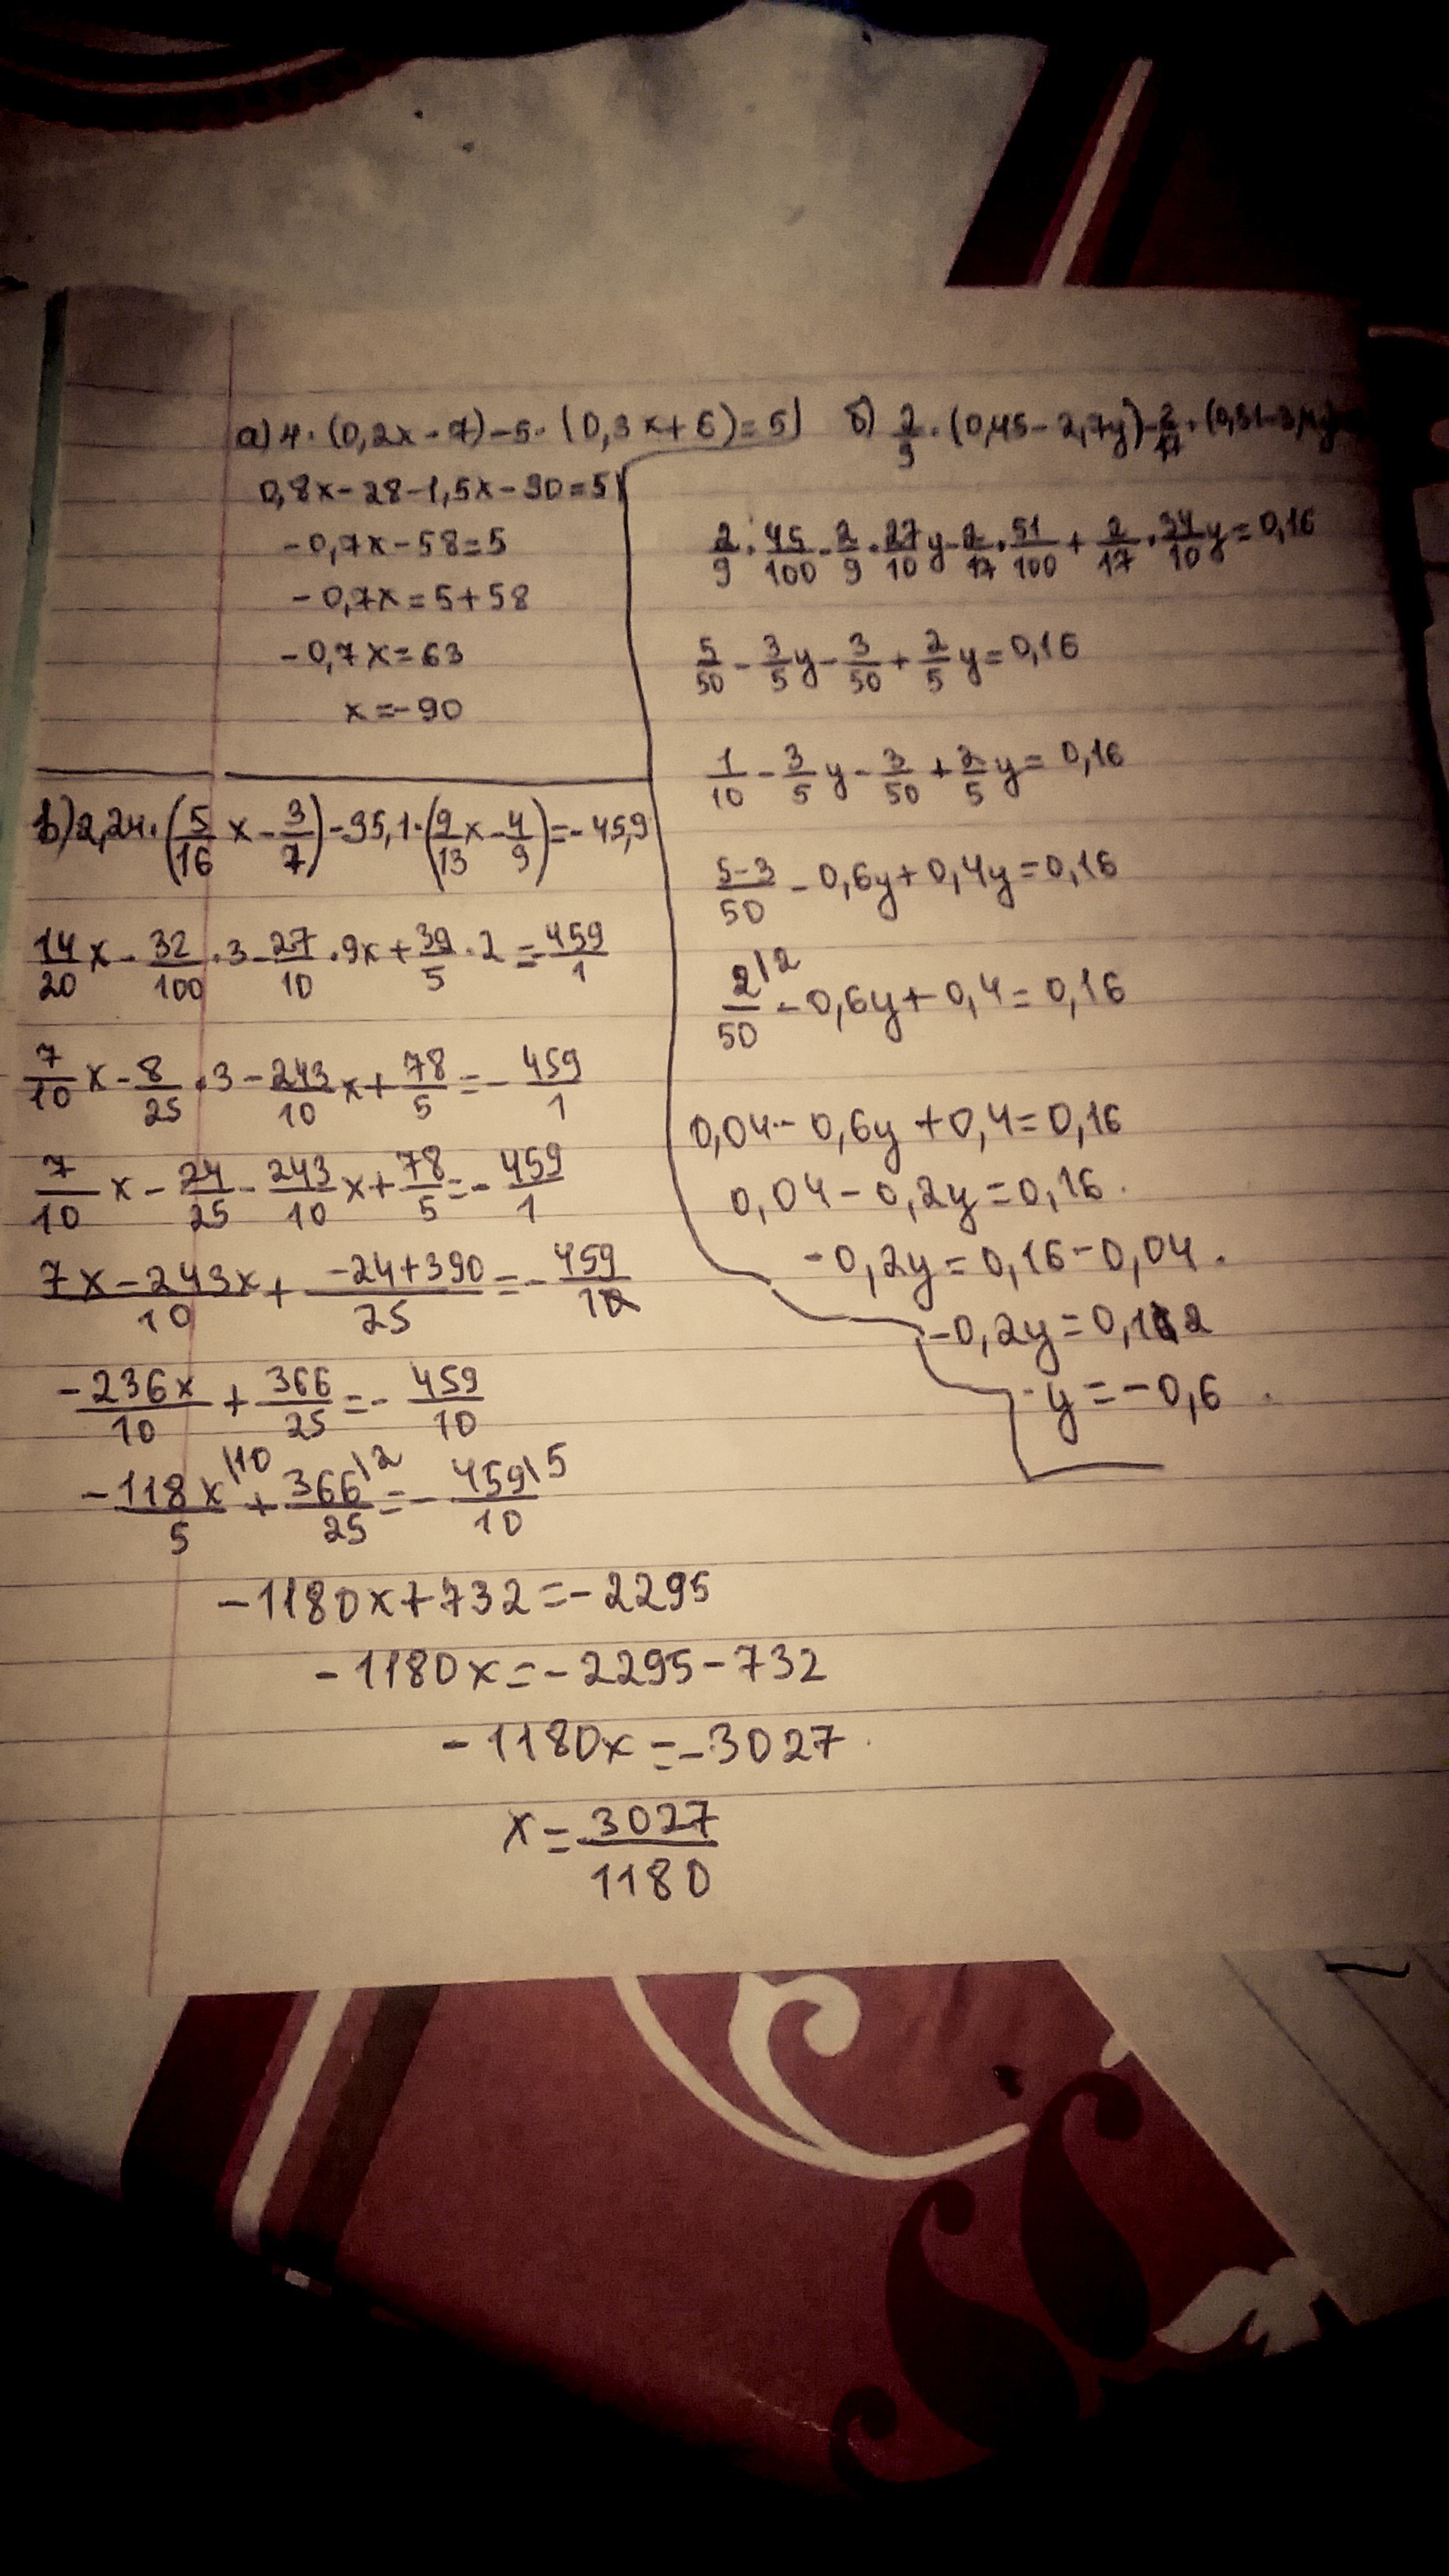 а) 4 · (0,2x - 7) - 5 · (0,3x + 6) = 5
0,8x - 28 - 1,5x - 30 = 5
-0,7x - 58 = 5
-0,7x = 5 + 58
-0,7x = 63
x = -90
б) 2/9 · (0,45 - 2,7y) - 2/17 · (0,51 - 3,4y)
2/9 · 45/100 - 2/9 · 27/10 y - 2/17 · 51/100 + 2/17 · 34/10 y = 0,16
5/50 - 3/5 y - 3/50 + 2/5 y = 0,16
1/10 - 3/5 y - 3/50 + 2/5 y = 0,16
5-3/50 - 0,6y + 0,4y = 0,16
2\2/50 - 0,6y + 0,4 = 0,16
0,04 - 0,6y + 0,4 = 0,16
0,04 - 0,2y = 0,16.
-0,2y = 0,16 - 0,04.
-0,2y = 0,12
y = -0,6
в) 2,24 · (5/16 x - 3/7) - 35,1 · (9/13 x - 4/9) = -45,9
14/20 x - 32/100 · 3 - 27/10 · 9x + 39/5 · 2 = -459/1
7/10 x - 8/25 · 3 - 243/10 x + 78/5 = - 459/1
7/10 x - 24/25 - 243/10 x + 78/5 = - 459/1
7x - 243x/10 + -24+390/25 = - 459/10
-236x/10 + 366/25 = - 459/10
-118x\10/5 + 366\2/25 = - 459\5/10
-1180x + 732 = -2295
-1180x = -2295 - 732
-1180x = -3027
x = 3027/1180